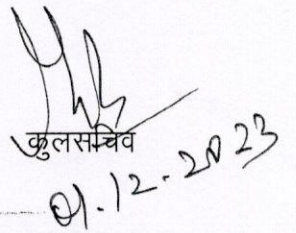 कुलसचिव
01.12.2023